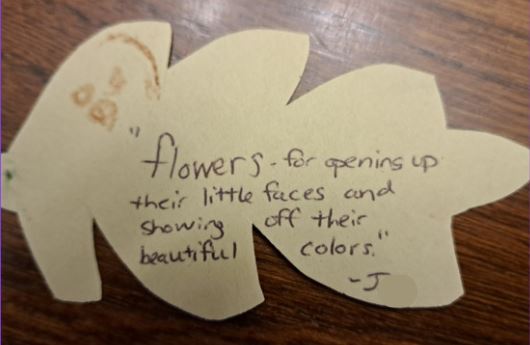 "flowers - for opening up
their little faces and
showing off their
beautiful colors."
- J